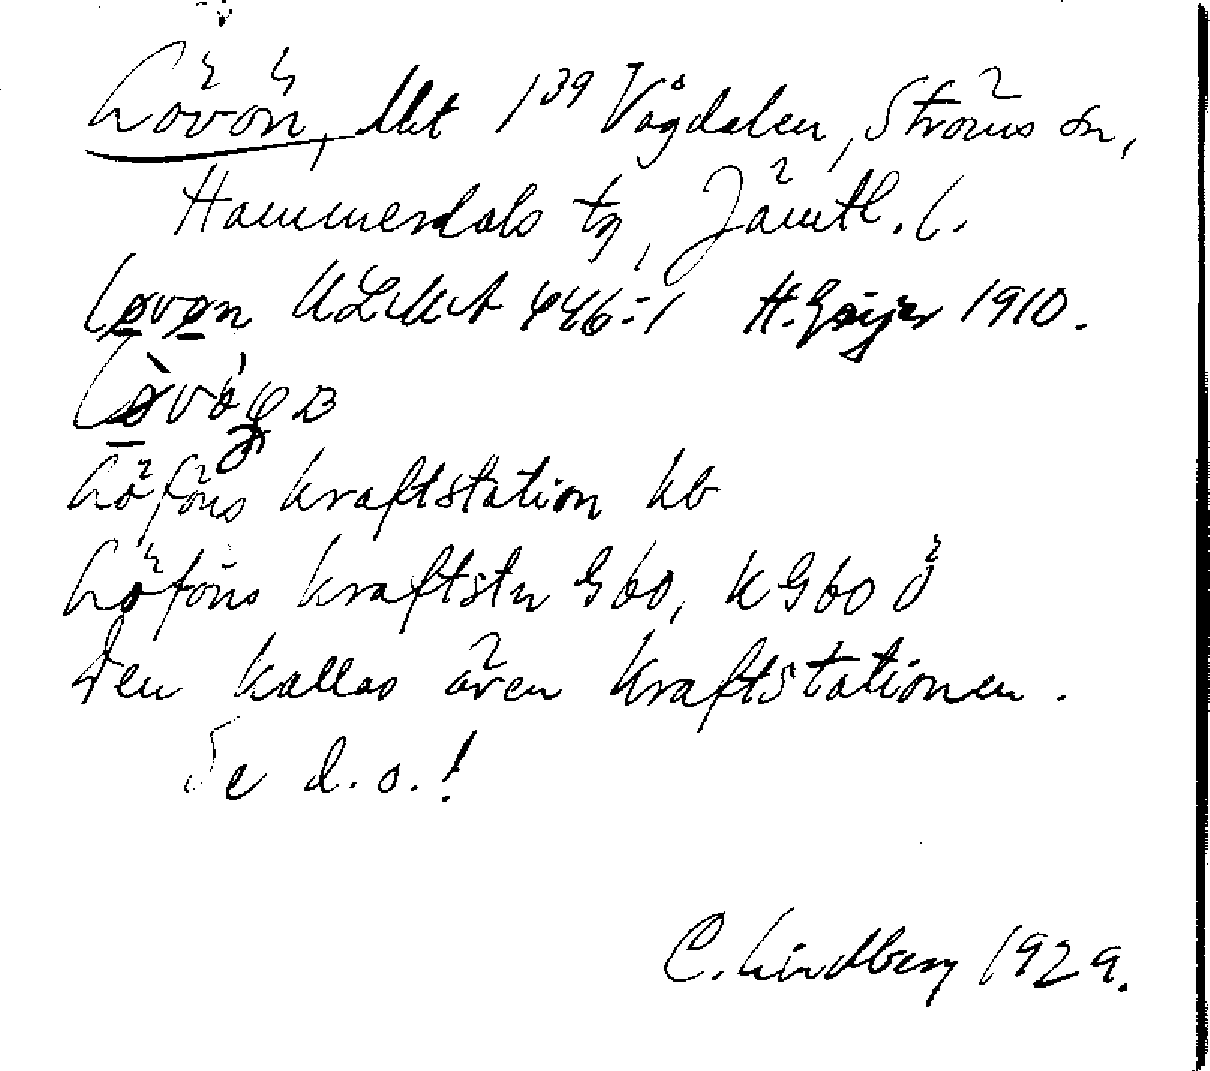 Lövön, Mt 1³⁹ Vågdalen, Ströms sn,
Hammerdals tg, Jämtl. l.
Løvøn 446:1 H. Geijer 1910.
Löföns kraftstation kb
Löföns kraftstn Gbo, KGbo
Den kallas även kraftstationen.
Se d. o.!
C. Lindberg 1929.